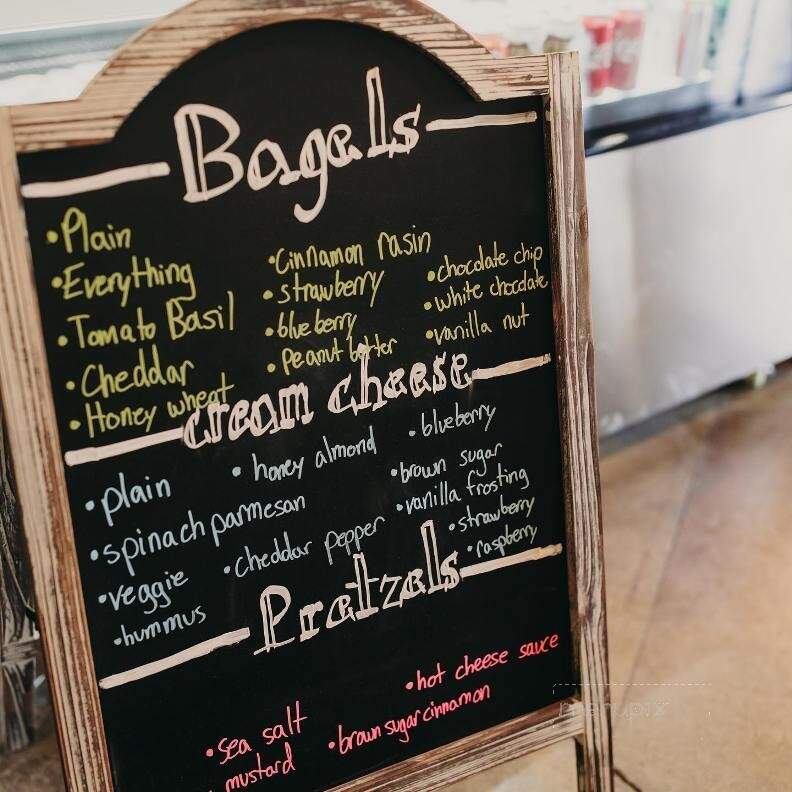 Bagels
• Plain
• Everything
• Tomato Basil
• Cheddar
• Honey wheat
• Cinnamon rasin
• strawberry
• blueberry
• peanut butter
• chocolate chip
• white chocolate
• vanilla nut
cream cheese
• plain
• spinach parmesan
• veggie
• hummus
• honey almond
• cheddar pepper
• blueberry
• brown sugar
• vanilla frosting
• strawberry
• raspberry
Pretzels
• sea salt
• mustard
• hot cheese sauce
• brown sugar cinnamon
menupix